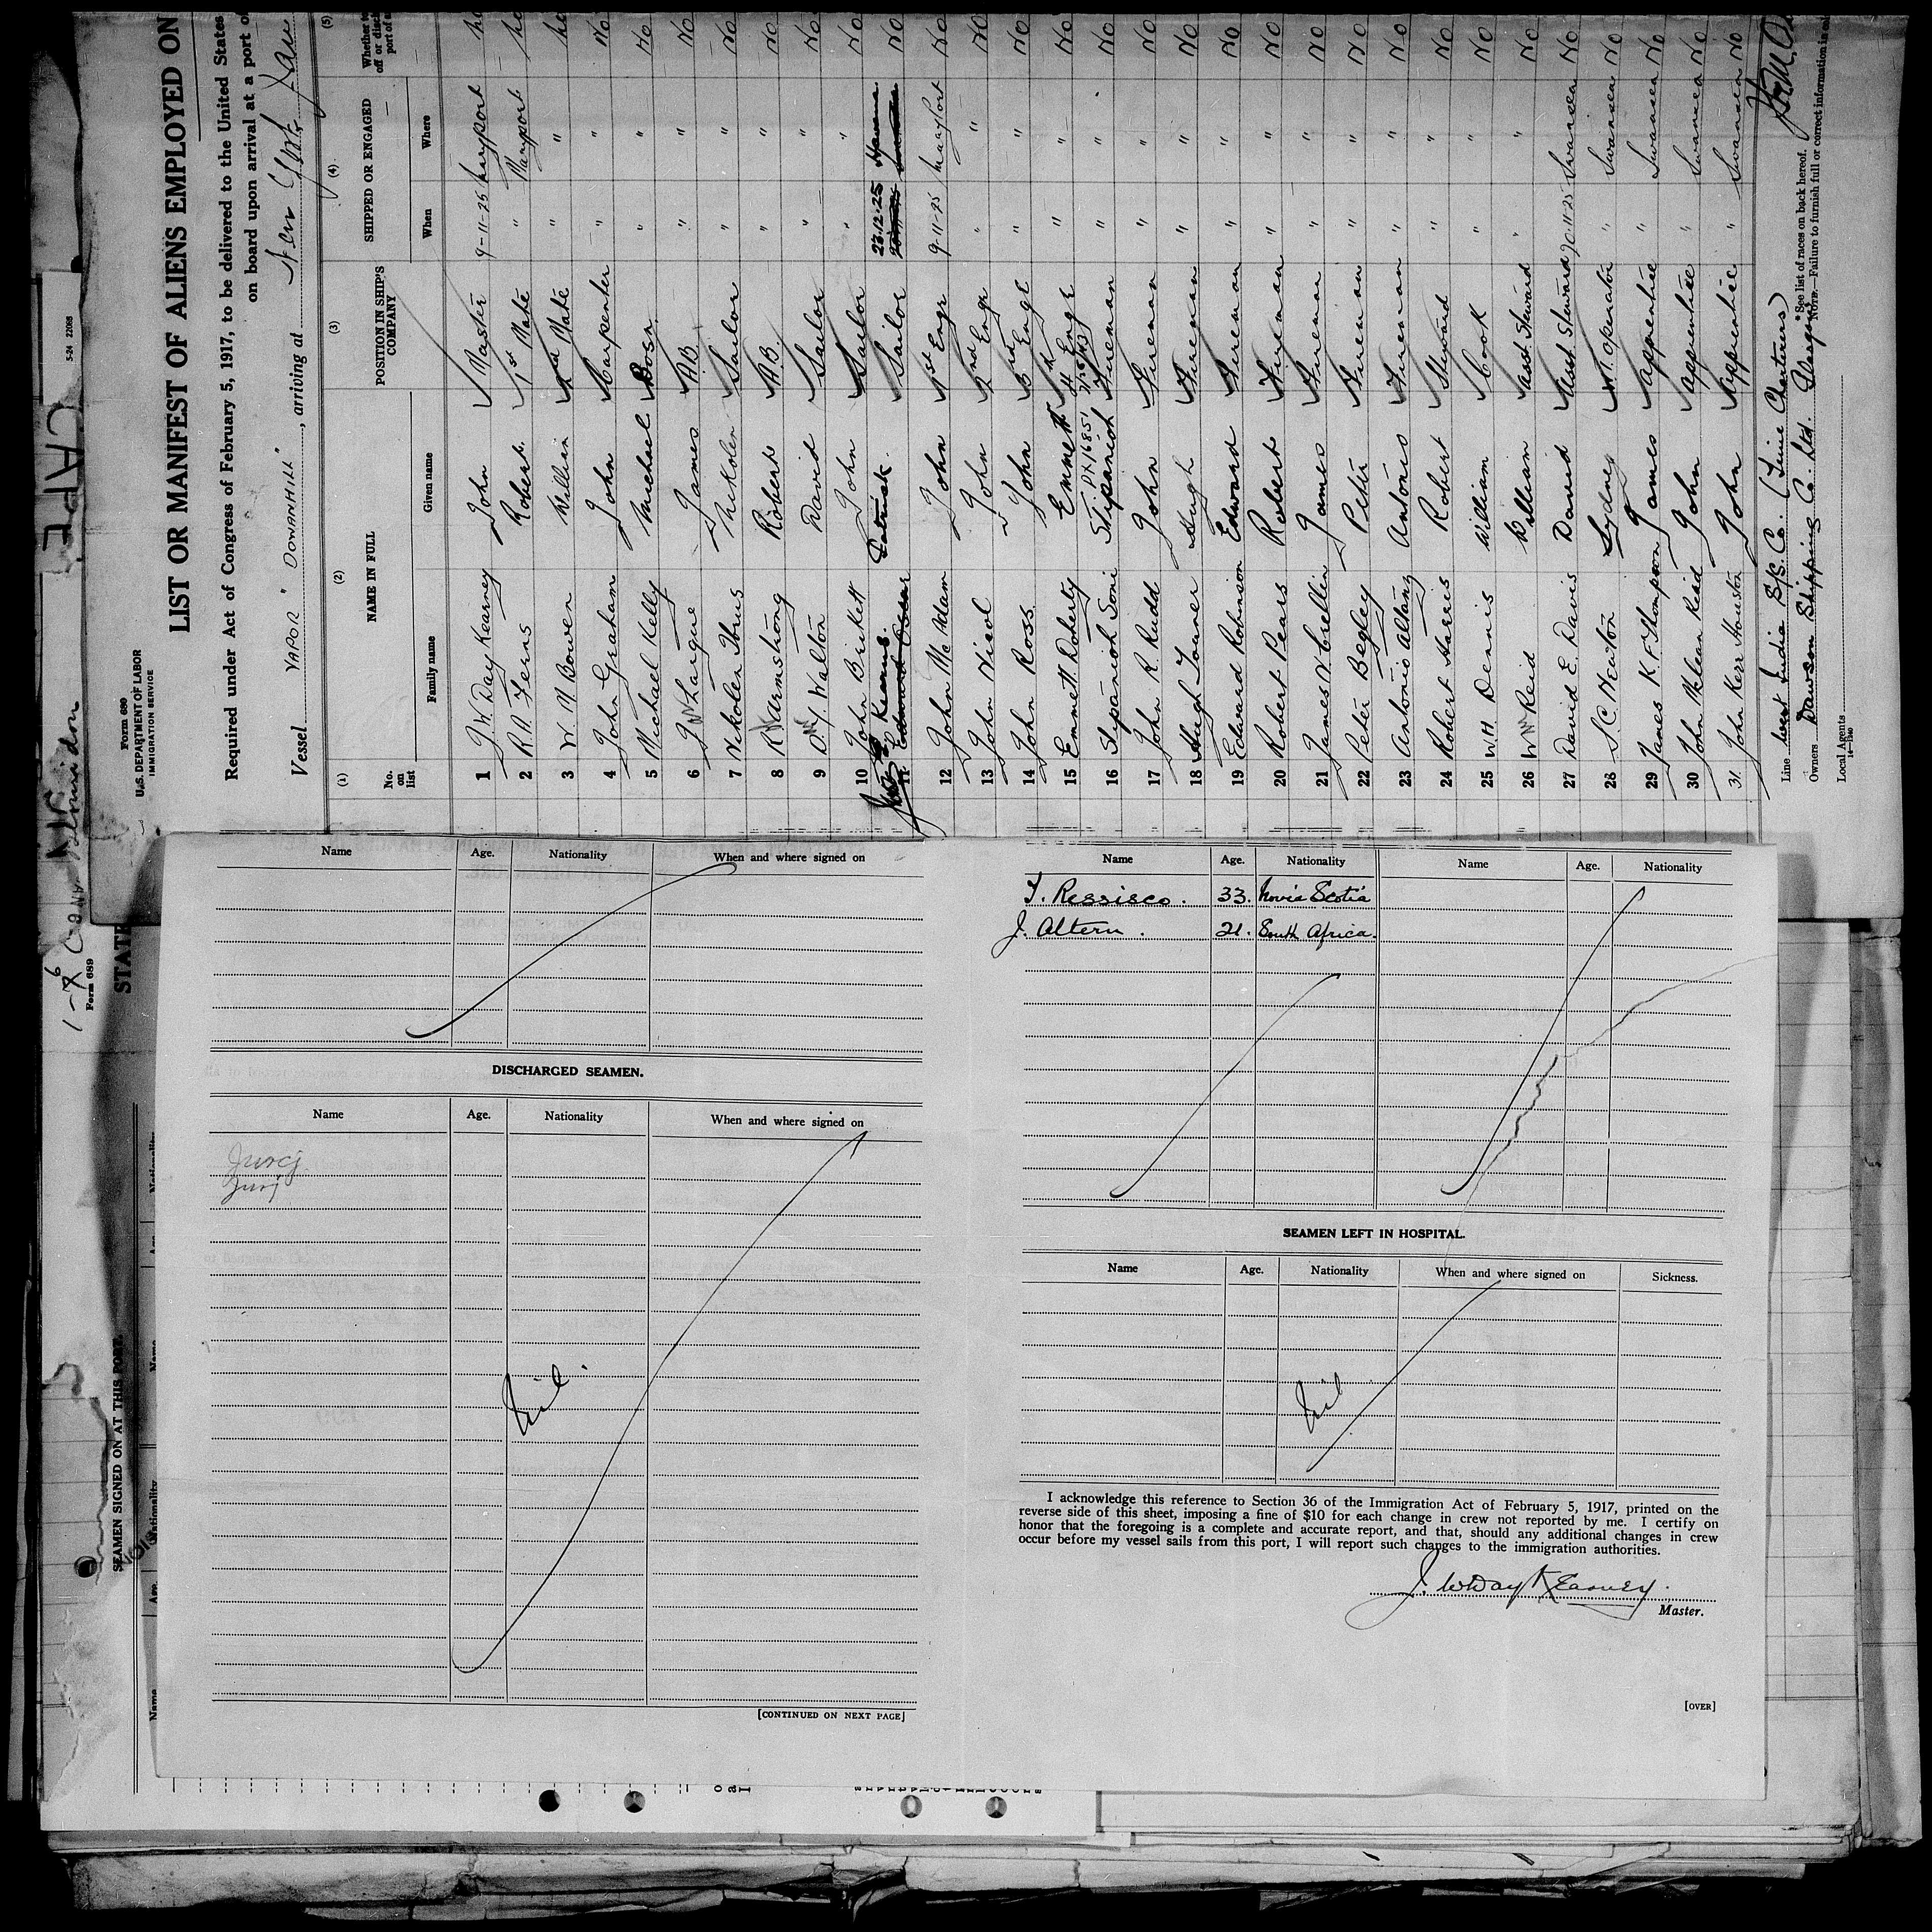 Form 680
U.S. DEPARTMENT OF LABOR
IMMIGRATION SERVICE
5-24 22068
LIST OR MANIFEST OF ALIENS EMPLOYED ON
Required under Act of Congress of February 5, 1917, to be delivered to the United States
on board upon arrival at a port of
Vessel VAPOR "DOWANHILL", arriving at New York
(1) (2) (3) (4) (5)
No. on list NAME IN FULL POSITION IN SHIP'S COMPANY SHIPPED OR ENGAGED
Family name Given name When Where
1 J. W. Day Kearney John Master 9-11-25 Maryport
2 R. N. Ferns Robert 1st Mate " Maryport
3 W. N. Bowen William 2nd Mate " "
4 John Graham John Carpenter " " No
5 Michael Kelly Michael Bosn " " No
6 J Largue James A.B. " " No
7 Nikolen Ibrus Nikolen Sailor " " No
8 R Armstrong Robert A.B. " " No
9 D. Y. Walton David Sailor " " No
10 John Birkett John Sailor " " No
11 Kearns. Patrick Sailor 23.12.25 No
12 John McAdam John 1st Engr 9-11-25 Maryport No
13 John Nicol John 2nd Engr " " No
14 John Ross John 3rd Engr " " No
15 Emmett Doherty Emmett 4th Engr " " No
16 Sepanioh Soni Stipanioh Fireman " " No
17 John R. Rudd John Fireman " " No
18 Hugh Toner Hugh Fireman " " No
19 Edward Robinson Edward Fireman " " No
20 Robert Pears Robert Fireman " " No
21 James V. Crellin James Fireman " " No
22 Peter Begley Peter Fireman " " No
23 Antonio Altanz Antonio Fireman " " No
24 Robert Harris Robert Steward " " No
25 W.H Dennis William Cook " " No
26 Wm Reid William Asst Steward " " No
27 David E. Davis David Asst Steward 20-11-25 Swansea No
28 S. C. Newton Sydney W.T. Operator " Swansea No
29 James K. F. Thompson James Apprentice " Swansea No
30 John McLean Reid John Apprentice " Swansea No
31 John Kerr Houston John Apprentice " Swansea No
Line West India S/S. Co. (Time Charterers)
Owners Dawson Shipping Co. Ltd. Glasgow
Local Agents
14-1240
*See list of races on back hereof.
NOTE.—Failure to furnish full or correct information is
Form 689
STATE
SEAMEN SIGNED ON AT THIS PORT.
Name Age Nationality Name Age Nationality
Name Age. Nationality When and where signed on
DISCHARGED SEAMEN.
Name Age. Nationality When and where signed on
Nil.
[CONTINUED ON NEXT PAGE]
Name Age. Nationality Name Age. Nationality
T. Ressisco. 33. Novia Scotia
J. Altern. 21. South Africa.
SEAMEN LEFT IN HOSPITAL.
Name Age. Nationality When and where signed on Sickness.
Nil
I acknowledge this reference to Section 36 of the Immigration Act of February 5, 1917, printed on the
reverse side of this sheet, imposing a fine of $10 for each change in crew not reported by me. I certify on
honor that the foregoing is a complete and accurate report, and that, should any additional changes in crew
occur before my vessel sails from this port, I will report such changes to the immigration authorities.
J. W Day Kearney.
Master.
[OVER]